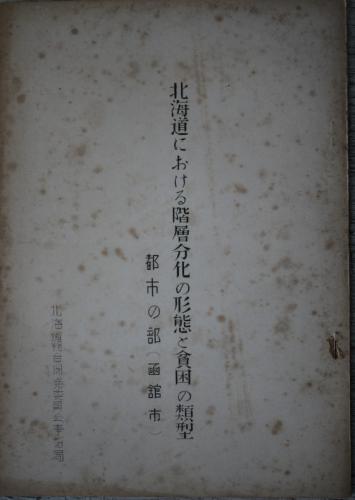 北海道における階層分化の形態と貧困の類型
都市の部（函館市）
北海道総合開発委員会事務局